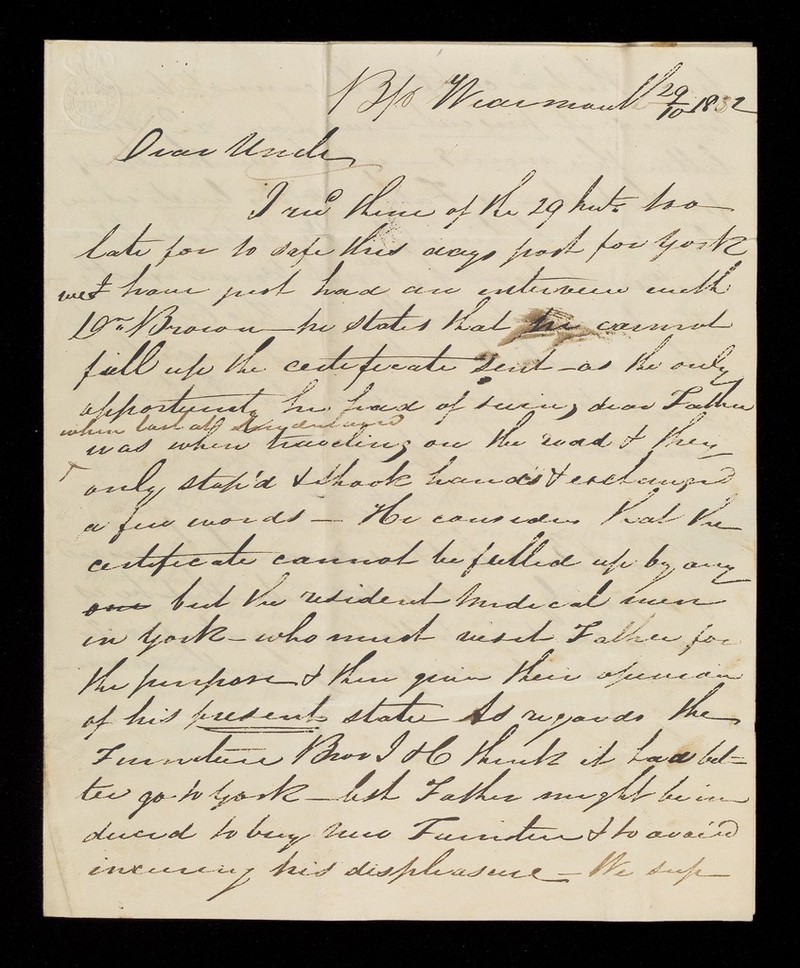 Bp Wearmouth 29/10 1832
Dear Uncle
I recd thine of the 29 Inst too
late for to safe this days post for York
we have just had an interview with
Dr Brown - he states that he cannot
fill up the certificate sent - as the only
opportunity he had of seeing dear Father
when last at
was when traveling on the road & they
only stop'd & shook hands & exchanged
a few words - He considers that the
certificate cannot be filled up by any
one but the resident Medical men
in York - who must visit Father for
the purpose & then given their opinion
of his present state As regards the
Furniture Bror J & C think it had bet=
ter go to York - lest Father might be in
duced to buy new Furniture & to avoid
incuring his displeasure - We sup